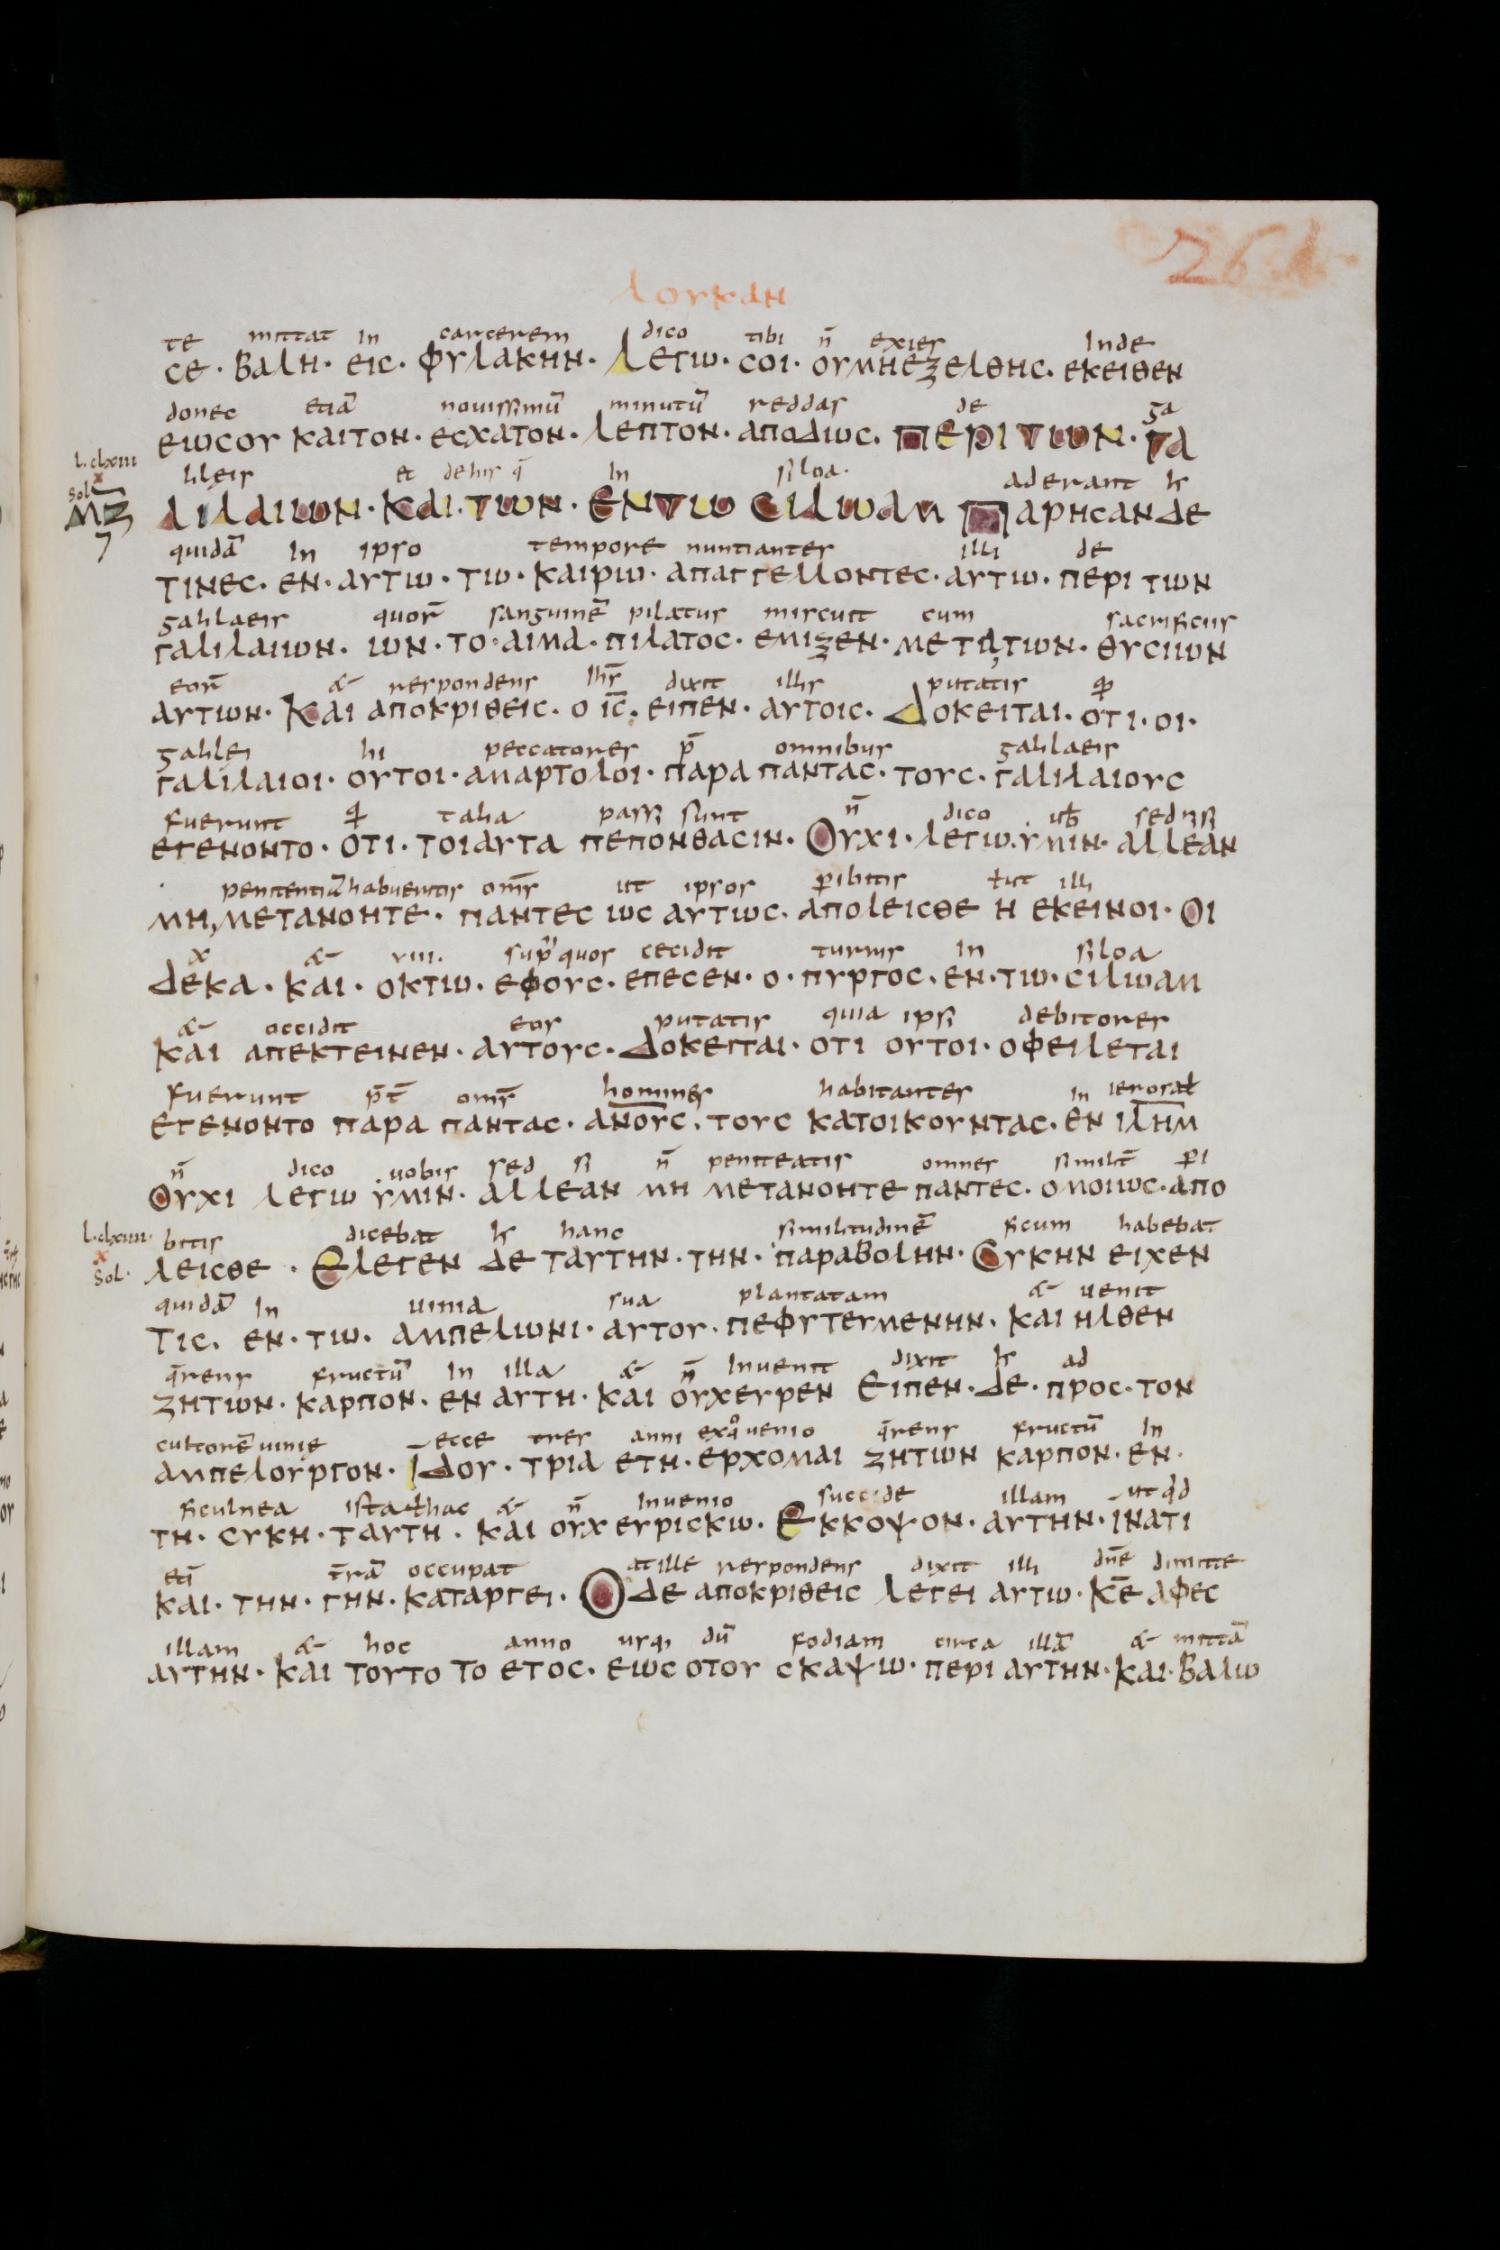 261
ΛΟΥΚΑΝ
te mittat in carcerem dico tibi n̄ exies Inde
CΕ · ΒΑΛΗ · ΕΙC · ΦΥΛΑΚΗΝ · ΛΕΓΩ · CΟΙ · ΟΥΜΗΕΞΕΛΘΗC · ΕΚΕΙΘΕΝ
donec etiā nouissimū minutū reddas de ga
ΕΩCΟΥ ΚΑΙΤΟΝ · ΕCΧΑΤΟΝ · ΛΕΠΤΟΝ · ΑΠΟΔΩC · ΠΕΡΙΤΩΝ · ΓΑ
lileis et dehis q̄ In siloa aderant h̵
ΛΙΛΑΙΩΝ · ΚΑΙ · ΤΩΝ · ΕΝΤΩ CΙΛΩΑΜ ΠΑΡΗCΑΝΔΕ
Sol
ΜΖ
quidā In ipso tempore nuntiantes illi de
ΤΙΝΕC · ΕΝ · ΑΥΤΩ · ΤΩ · ΚΑΙΡΩ · ΑΠΑΓΓΕΛΛΟΝΤΕC · ΑΥΤΩ · ΠΕΡΙ ΤΩΝ
galilaeis quoɼ̄ sanguinē pilatus miscuit cum sacrificiis
ΓΑΛΙΛΑΙΩΝ · ΩΝ · ΤΟ · ΑΙΜΑ · ΠΙΛΑΤΟC · ΕΜΙΞΕΝ · ΜΕΤΑΤΩΝ · ΘΥCΙΩΝ
eoɼ̄ & respondens Ihs̄ dixit illis putatis qɨ
ΑΥΤΩΝ · ΚΑΙ ΑΠΟΚΡΙΘΕΙC · Ο ΙC̄ · ΕΙΠΕΝ · ΑΥΤΟΙC · ΔΟΚΕΙΤΑΙ · ΟΤΙ · ΟΙ ·
galilei hi peccatores p̄ omnibus galilaeis
ΓΑΛΙΛΑΙΟΙ · ΟΥΤΟΙ · ΑΜΑΡΤΟΛΟΙ · ΠΑΡΑ ΠΑΝΤΑC · ΤΟΥC · ΓΑΛΙΛΑΙΟΥC
fuerunt qɨ talia passi sunt n̄ dico uob sed si
ΕΓΕΝΟΝΤΟ · ΟΤΙ · ΤΟΙΑΥΤΑ ΠΕΠΟΝΘΑCΙΝ · ΟΥΧΙ · ΛΕΓΩ · ΥΜΙΝ · ΑΛΛΕΑΝ
penitentiā habueritis om̄s ut ipsos p̱ibitis ɫut illi
ΜΗ, ΜΕΤΑΝΟΗΤΕ · ΠΑΝΤΕC ΩC ΑΥΤΩC · ΑΠΟΛΕΙCΘΕ Η ΕΚΕΙΝΟΙ · ΟΙ
x & viii. sup̄ quos cecidit turris in siloa
ΔΕΚΑ · ΚΑΙ · ΟΚΤΩ · ΕΦΟΥC · ΕΠΕCΕΝ · Ο · ΠΥΡΓΟC · ΕΝ · ΤΩ · CΙΛΩΑΜ
& occidit eos putatis quia ipsi debitores
ΚΑΙ ΑΠΕΚΤΕΙΝΕΝ · ΑΥΤΟΥC · ΔΟΚΕΙΤΑΙ · ΟΤΙ ΟΥΤΟΙ · ΟΦΕΙΛΕΤΑΙ
fuerunt p̄t̄ om̄s homines habitantes in ierosaɫ
ΕΓΕΝΟΝΤΟ ΠΑΡΑ ΠΑΝΤΑC · ΑΝΟΥC · ΤΟΥC ΚΑΤΟΙΚΟΥΝΤΑC · ΕΝ ΙΛΗΜ
n̄ dico uobis sed si n̄ peniteatis omnes similit̄ p̱i
ΟΥΧΙ ΛΕΓΩ ΥΜΙΝ · ΑΛΛΕΑΝ ΜΗ ΜΕΤΑΝΟΗΤΕ ΠΑΝΤΕC · ΟΜΟΙΩC · ΑΠΟ
bitis dicebat h̵ hanc similitudinē ficum habebat
Sol · ΛΕΙCΘΕ · ΕΛΕΓΕΝ ΔΕ ΤΑΥΤΗΝ · ΤΗΝ · ΠΑΡΑΒΟΛΗΝ · CΥΚΗΝ ΕΙΧΕΝ
quidā In uinia sua plantatam & uenit
ΤΙC · ΕΝ · ΤΩ · ΑΜΠΕΛΩΝΙ · ΑΥΤΟΥ · ΠΕΦΥΤΕΥΜΕΝΗΝ · ΚΑΙ ΗΛΘΕΝ
q̄rens fructū In illa & n̄ Inuenit dixit h̵ ad
ΖΗΤΩΝ · ΚΑΡΠΟΝ · ΕΝ ΑΥΤΗ · ΚΑΙ ΟΥΧΕΥΡΕΝ ΕΙΠΕΝ · ΔΕ · ΠΡΟC · ΤΟΝ
cultorē uinię ecce tres anni exq° uenio q̄rens fructū In
ΑΜΠΕΛΟΥΡΓΟΝ · ΙΔΟΥ · ΤΡΙΑ ΕΤΗ · ΕΡΧΟΜΑΙ ΖΗΤΩΝ ΚΑΡΠΟΝ · ΕΝ ·
ficulnea ista ɫ hac & n̄ Inuenio succide illam ut qd
ΤΗ · CΥΚΗ · ΤΑΥΤΗ · ΚΑΙ ΟΥΧ ΕΥΡΙCΚΩ · ΕΚΚΟΨΟΝ · ΑΥΤΗΝ · ΙΝΑΤΙ
etī t̄rā occupat at ille respondens dixit illi dn̄e dimitte
ΚΑΙ · ΤΗΝ · ΓΗΝ · ΚΑΤΑΡΓΕΙ · ΟΔΕ ΑΠΟΚΡΙΘΕΙC ΛΕΓΕΙ ΑΥΤΩ · ΚΕ̄ ΑΦΕC
illam & hoc anno usq; dū fodiam circa illā & mittā
ΑΥΤΗΝ · ΚΑΙ ΤΟΥΤΟ ΤΟ ΕΤΟC · ΕΩC ΟΤΟΥ CΚΑΨΩ · ΠΕΡΙ ΑΥΤΗΝ · ΚΑΙ · ΒΑΛΩ